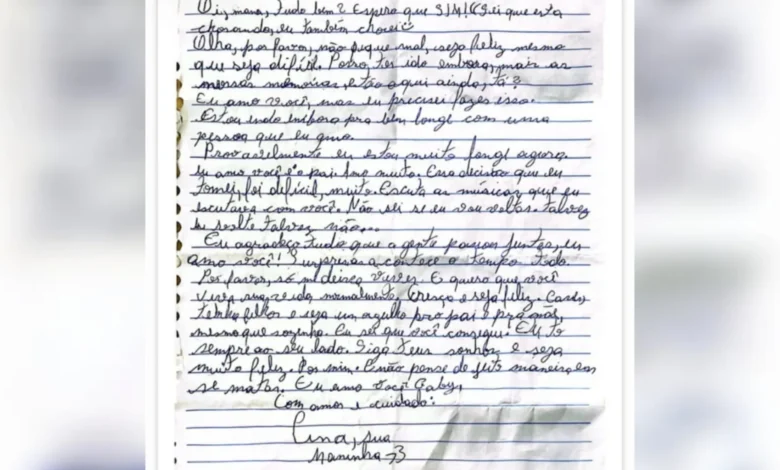 Oi, mana, tudo bem? Espero que SIM! (Sei que esta
chorando, eu também chorei
Olha, por favor, não fique mal, seja feliz mesmo
que seja difícil. Posso ter ido embora, mais as
nossas memórias, estão aqui ainda, tá?
Eu amo você, mas eu precisei fazer isso.
Estou indo embora pra bem longe com uma
pessoa que eu amo.
Provavelmente eu estou muito longe agora.
eu amo você e o pai muito. Essa decisão que eu
tomei, foi difícil, muito. Escuta as músicas que eu
escutava com você. Não sei se eu vou voltar. talvez
eu volte talvez não...
Eu agradeço tudo que a gente passou juntas, eu
amo você! Surpresas acontece o tempo todo.
Por favor, só me deixa viver. E quero que você
viva normalmente, cresça e seja feliz. Case,
tenha filhos e seja um orgulho pro pai e pra mãe,
mesmo que sozinha. Eu sei que você consegue. Eu to
sempre ao seu lado. Siga teus sonhos e seja
muito feliz. Por mim. E não pense de jeito maneira em
se matar. Eu amo você Gaby,
Com amor e cuidado:
sua
Maninha <3